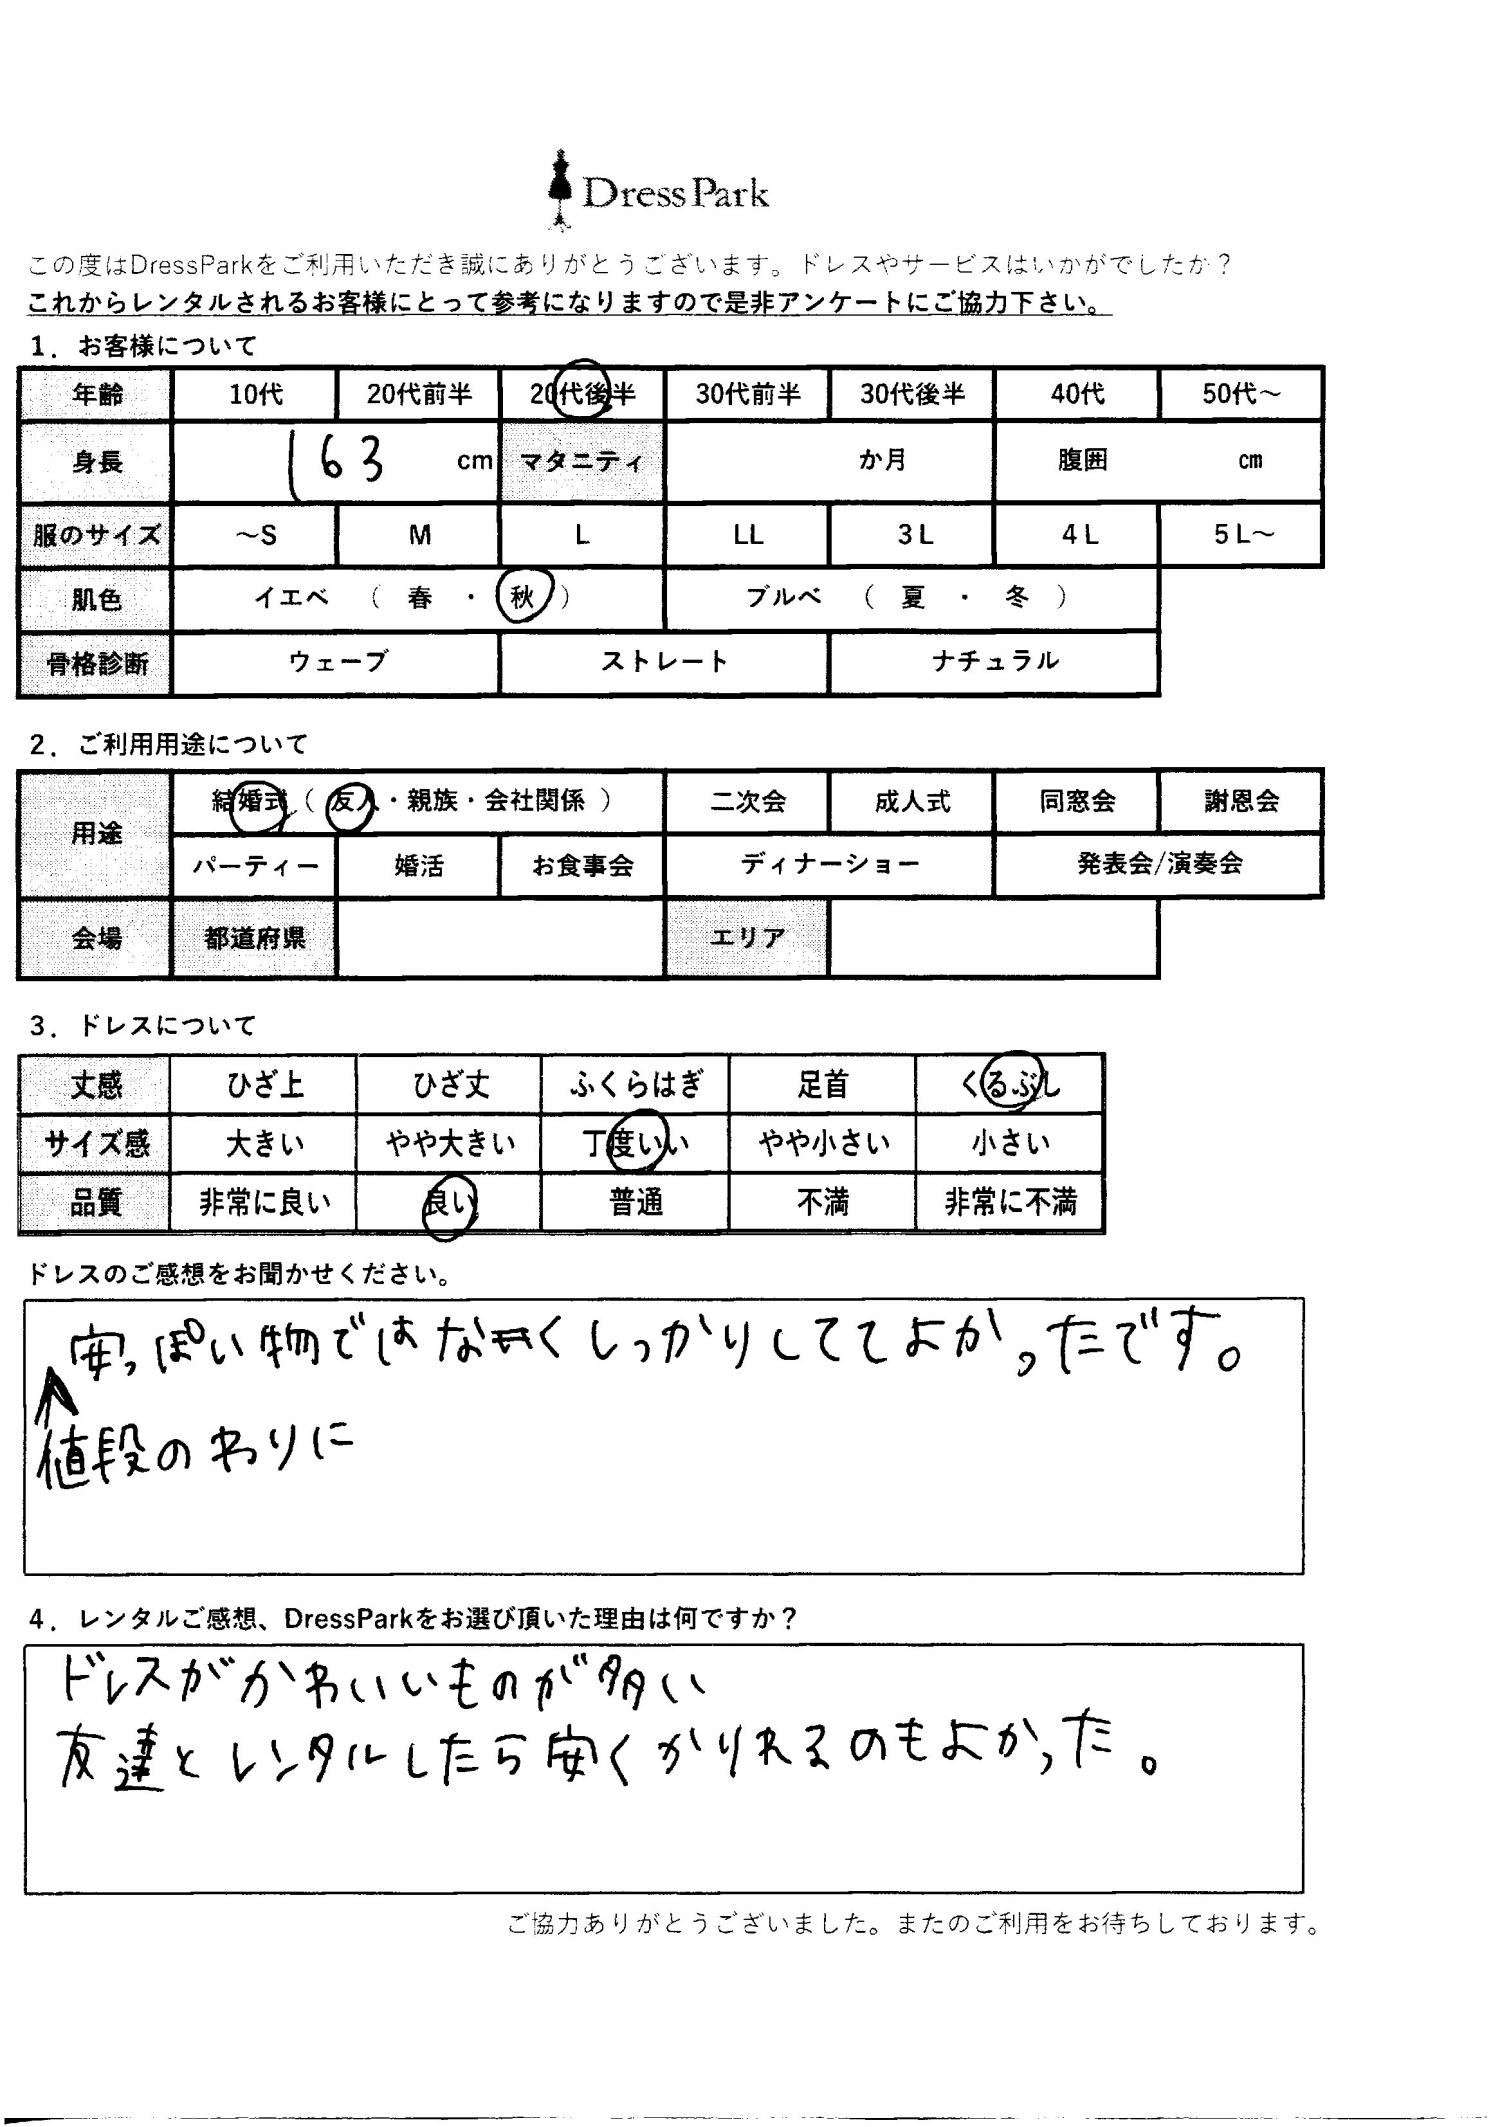 DressPark
この度はDressParkをご利用いただき誠にありがとうございます。ドレスやサービスはいかがでしたか？
これからレンタルされるお客様にとって参考になりますので是非アンケートにご協力下さい。
1．お客様について
年齢 10代 20代前半 20代後半 30代前半 30代後半 40代 50代～
身長 163 cm マタニティ か月 腹囲 cm
服のサイズ ～S M L LL 3L 4L 5L～
肌色 イエベ （ 春 ・ 秋 ） ブルベ （ 夏 ・ 冬 ）
骨格診断 ウェーブ ストレート ナチュラル
2．ご利用用途について
用途 結婚式（ 友人・親族・会社関係 ） 二次会 成人式 同窓会 謝恩会
パーティー 婚活 お食事会 ディナーショー 発表会/演奏会
会場 都道府県 エリア
3．ドレスについて
丈感 ひざ上 ひざ丈 ふくらはぎ 足首 くるぶし
サイズ感 大きい やや大きい 丁度いい やや小さい 小さい
品質 非常に良い 良い 普通 不満 非常に不満
ドレスのご感想をお聞かせください。
安っぽい物ではなくしっかりしててよかったです。
値段のわりに
4．レンタルご感想、DressParkをお選び頂いた理由は何ですか？
ドレスがかわいいものが多い
友達とレンタルしたら安くかりれるのもよかった。
ご協力ありがとうございました。またのご利用をお待ちしております。